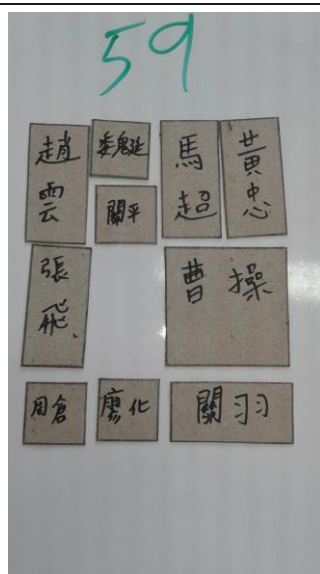 59
趙雲
魏延
馬超
黃忠
關平
張飛
曹操
周倉
廖化
關羽